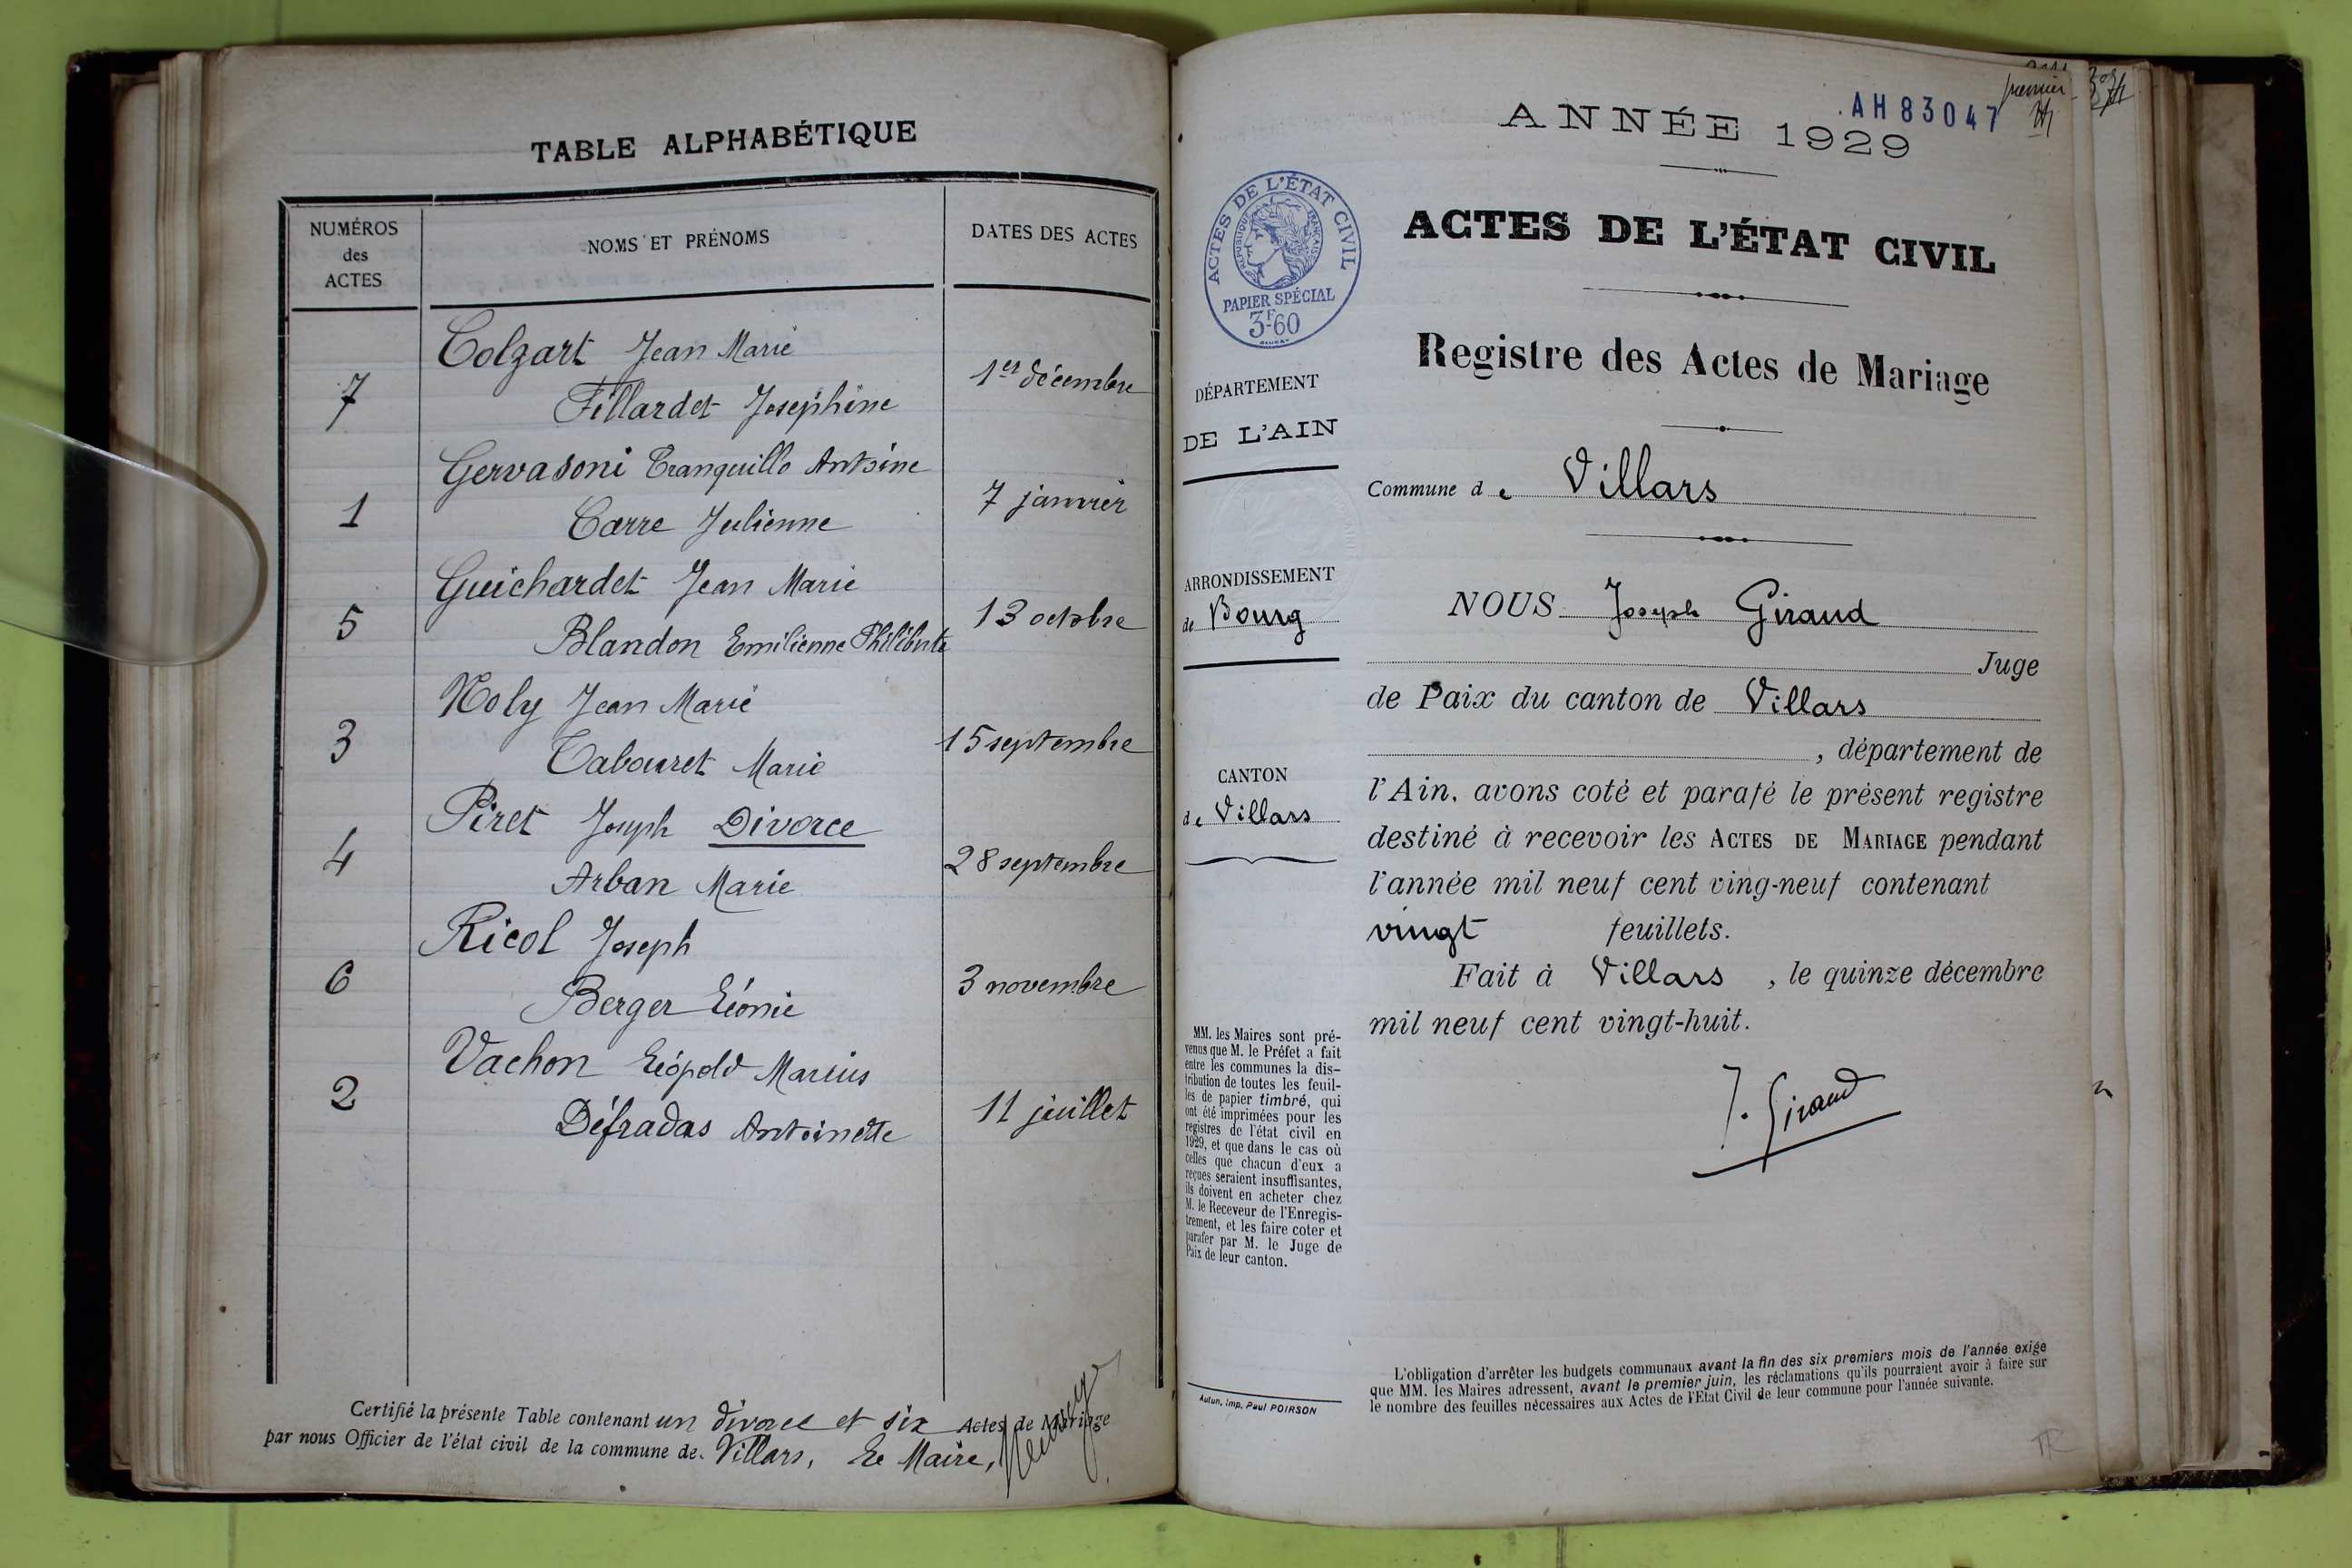 TABLE ALPHABÉTIQUE
NUMÉROS
des
ACTES
NOMS ET PRÉNOMS
DATES DES ACTES
Colzart Jean Marie
7
1er décembre
Fillardet Joséphine
Gervasoni Tranquillo Antoine
1
7 janvier
Carre Julienne
Guichardet Jean Marie
5
13 octobre
Blandon Emilienne Philiberte
Noly Jean Marie
3
15 septembre
Tabouret Marie
Piret Joseph Divorce
4
28 septembre
Arban Marie
Ricol Joseph
6
3 novembre
Berger Léonie
Vachon Léopold Marius
2
11 juillet
Défradas Antoinette
Certifié la présente Table contenant un divorce et six Actes de Mariage
par nous Officier de l'état civil de la commune de Villars, Le Maire,
AH 83047
premier
ANNÉE 1929
ACTES DE L'ÉTAT CIVIL
RÉPUBLIQUE FRANÇAISE
PAPIER SPÉCIAL
3F-60
ACTES DE L'ÉTAT CIVIL
Registre des Actes de Mariage
DÉPARTEMENT
DE L'AIN
Commune de Villars
ARRONDISSEMENT
de Bourg
NOUS Joseph Giraud
Juge
de Paix du canton de Villars
, département de
CANTON
de Villars
l'Ain, avons coté et parafé le présent registre
destiné à recevoir les ACTES DE MARIAGE pendant
l'année mil neuf cent ving-neuf contenant
vingt feuillets.
Fait à Villars , le quinze décembre
mil neuf cent vingt-huit.
J. Giraud
MM. les Maires sont pré-
venus que M. le Préfet a fait
entre les communes la dis-
tribution de toutes les feuil-
les de papier timbré, qui
ont été imprimées pour les
registres de l'état civil en
1929, et que dans le cas où
celles que chacun d'eux a
reçues seraient insuffisantes,
ils doivent en acheter chez
M. le Receveur de l'Enregis-
trement, et les faire coter et
parafer par M. le Juge de
Paix de leur canton.
Autun, Imp. Paul POIRSON
L'obligation d'arrêter les budgets communaux avant la fin des six premiers mois de l'année exige
que MM. les Maires adressent, avant le premier juin, les réclamations qu'ils pourraient avoir à faire sur
le nombre des feuilles nécessaires aux Actes de l'Etat Civil de leur commune pour l'année suivante.